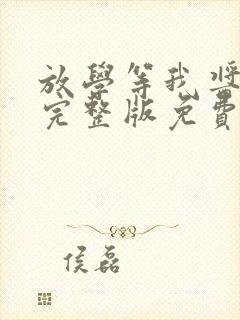 放學等我獎
完整版免費
侯磊